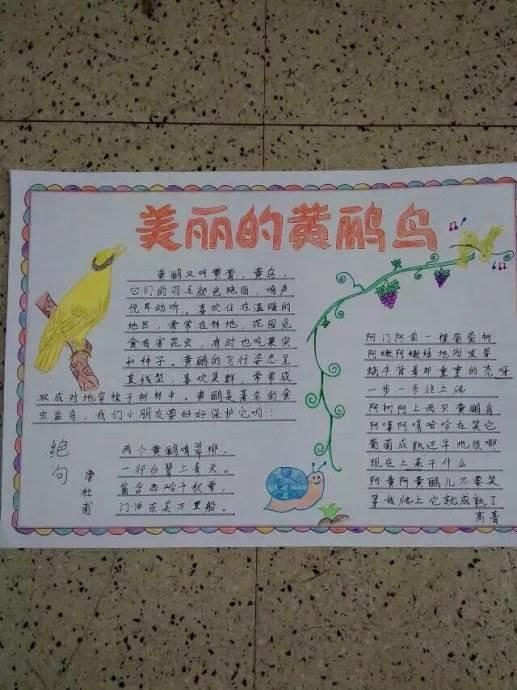 美丽的黄鹂鸟
黄鹂又叫黄莺，黄鸟，
它们的羽毛颜色艳丽，鸣声
悦耳动听。喜欢住在温暖的
地区，常常在林地，花园觅
食有害昆虫，有时也吃果实
和种子。黄鹂的飞行姿态呈
直线型，喜欢集群，常常成
双成对地穿梭于树林中。黄鹂是著名的食
虫益鸟，我们小朋友要好好保护它哟！
绝句
唐 杜甫
两个黄鹂鸣翠柳，
一行白鹭上青天。
窗含西岭千秋雪，
门泊东吴万里船。
阿门阿前一棵葡萄树
阿嫩阿嫩绿地刚发芽
蜗牛背着那重重的壳呀
一步一步往上爬
阿树阿上两只黄鹂鸟
阿嘻阿嘻哈哈在笑它
葡萄成熟还早地很哪
现在上来干什么
阿黄阿黄鹂儿不要笑
等我爬上它就成熟了